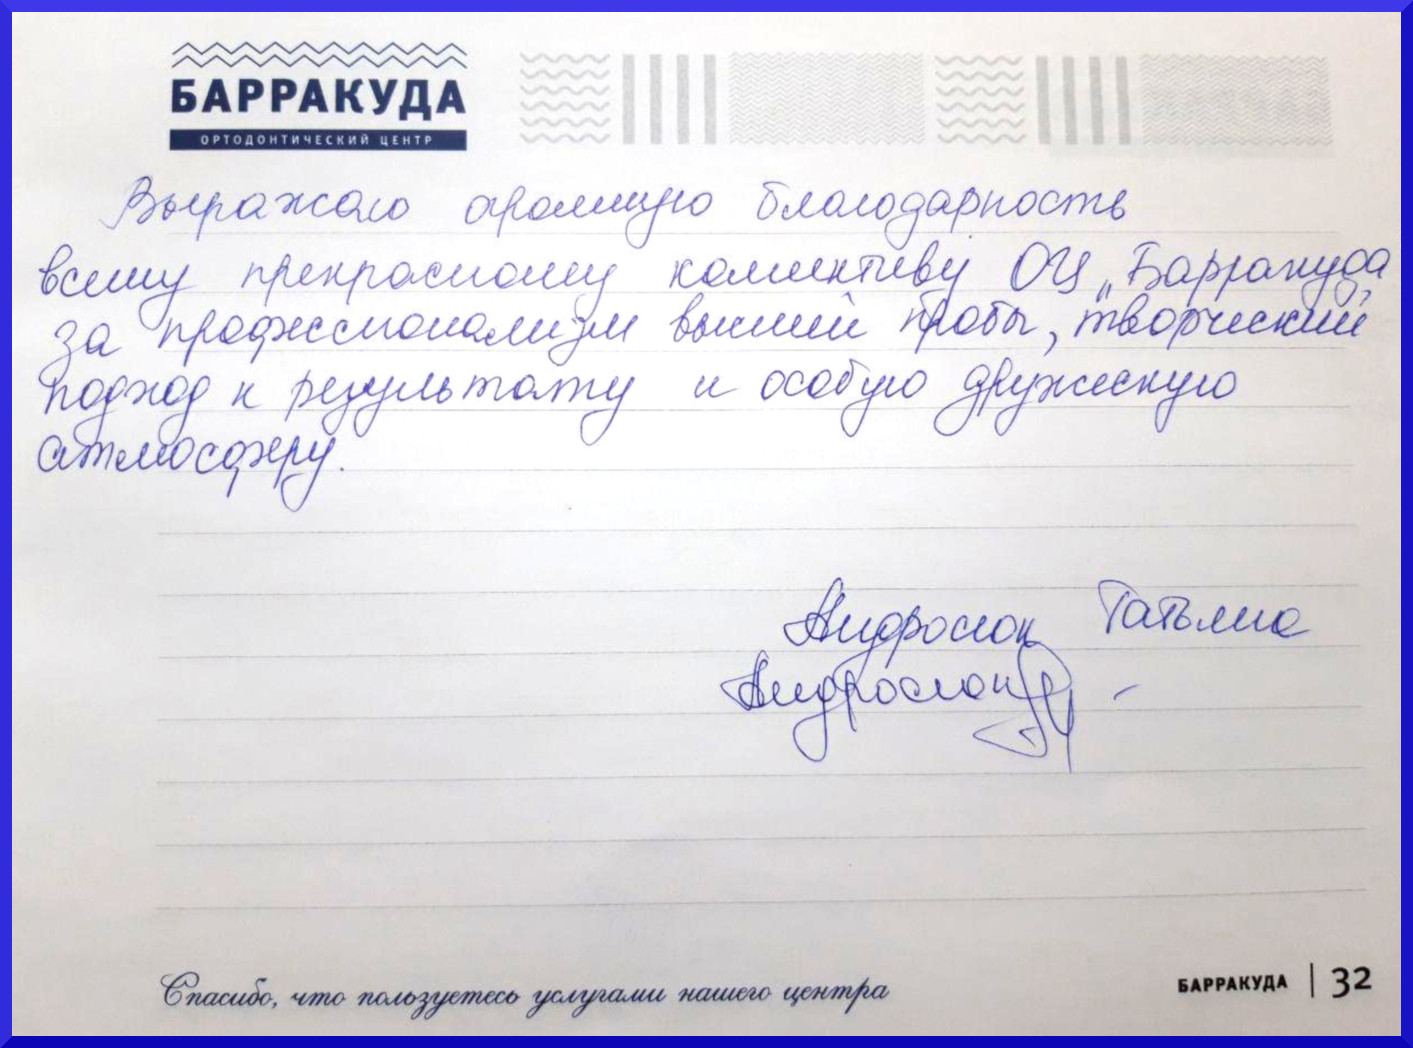 БАРРАКУДА
ОРТОДОНТИЧЕСКИЙ ЦЕНТР
Выражаю огромную благодарность
всему прекрасному коллективу ОЦ „Барракуда"
за профессионализм высшей пробы, творческий
подход к результату и особую дружескую
атмосферу.
Андросюк Татьяна
Андросюк
Спасибо, что пользуетесь услугами нашего центра
БАРРАКУДА | 32